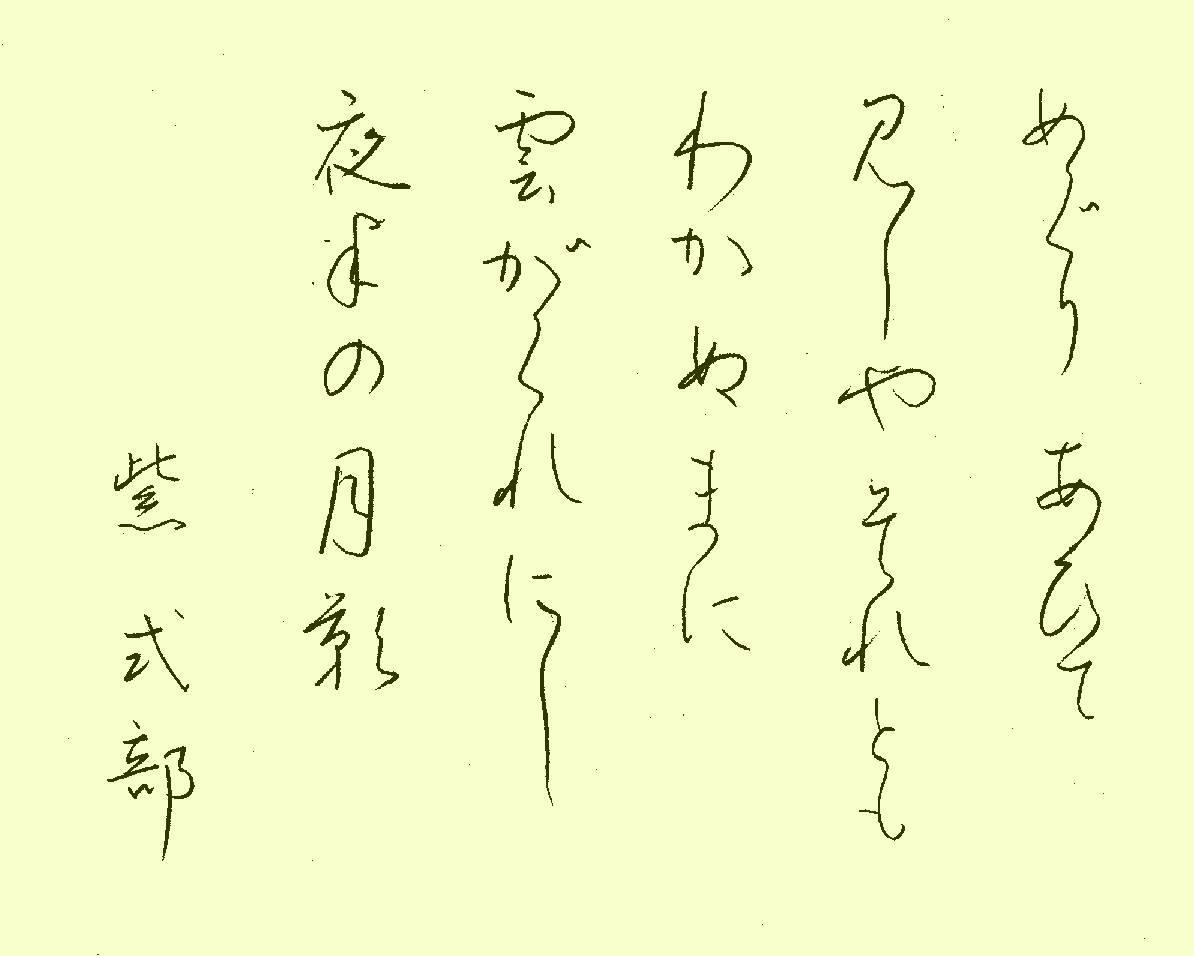 めぐりあひて
見しやそれとも
わかぬまに
雲がくれにし
夜半の月影
紫式部